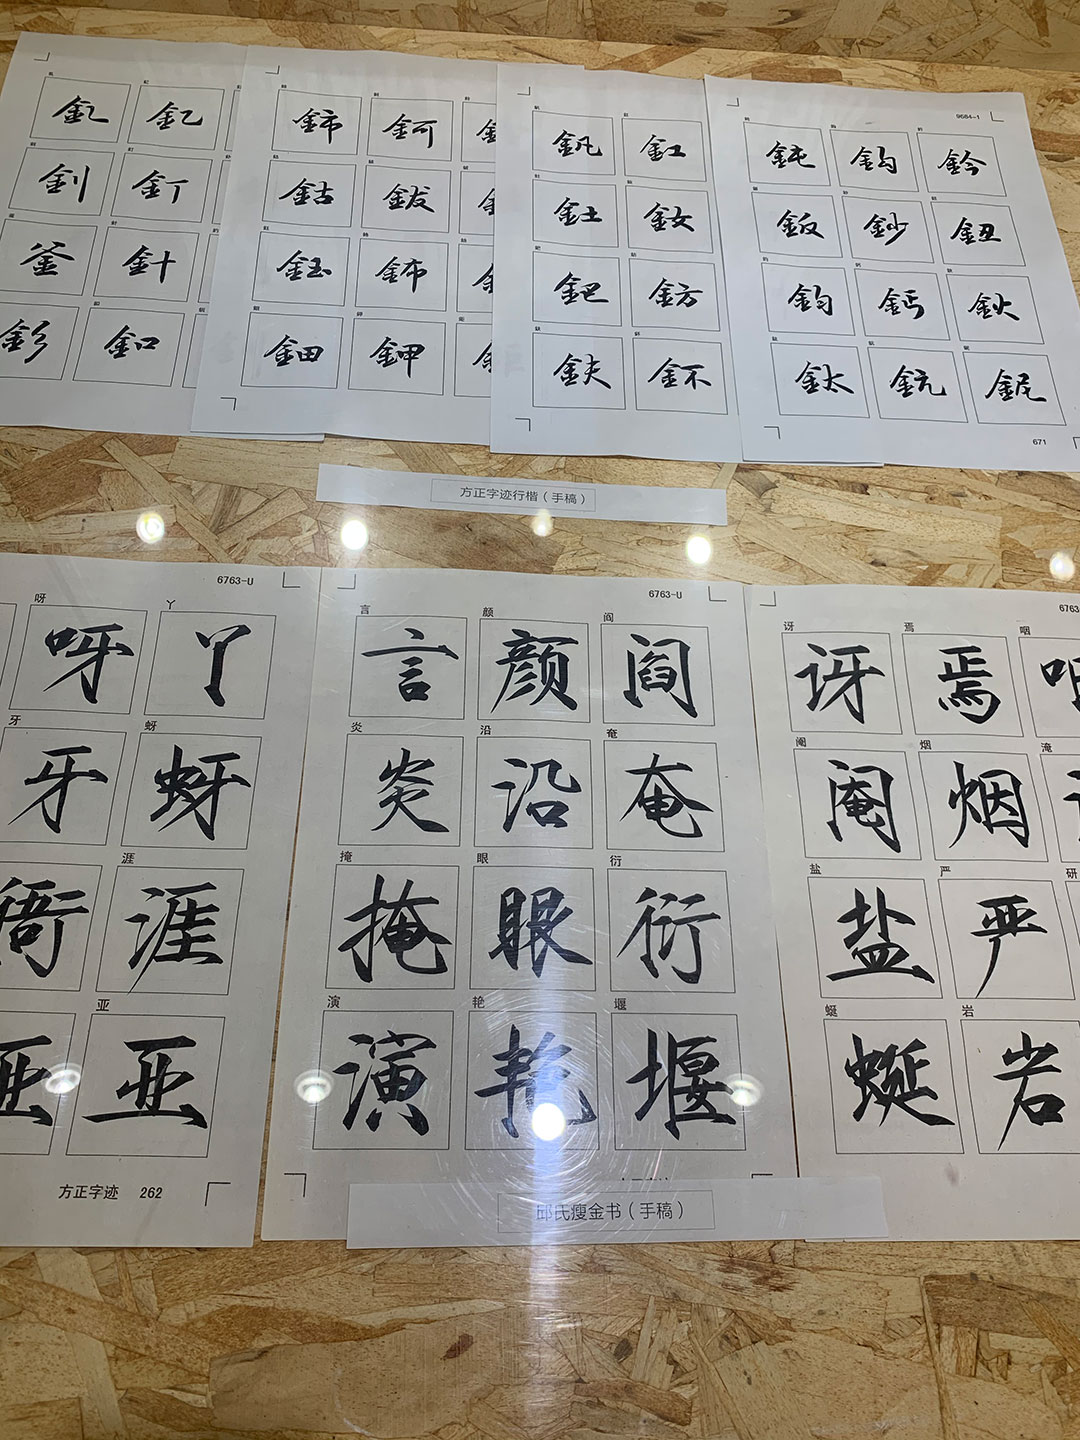 9684-1
釓 釔
釗 釘
釜 針
釤 釦
鈰 鈳
鈷 鈸
鈺 鈽
鈿 鉀
釩 釭
釷 釹
鈀 鈁
鈇 鈈
鈍 鈎 鈐
鈑 鈔 鈕
鈞 鈣 鈥
鈦 鈧 鈮
671
方正字迹行楷（手稿）
6763-U
呀 丫
呀 丫
牙 蚜
牙 蚜
涯
衙 涯
亚
亚
方正字迹 262
6763-U
言 颜 阎
言 颜 阎
炎 沿 奄
炎 沿 奄
掩 眼 衍
掩 眼 衍
演 艳 堰
演 艳 堰
6763
讶 焉 咽
讶 焉 咽
阉 烟 淹
阉 烟
盐 严 研
盐 严
蜒 岩
蜒 岩
邱氏瘦金书（手稿）